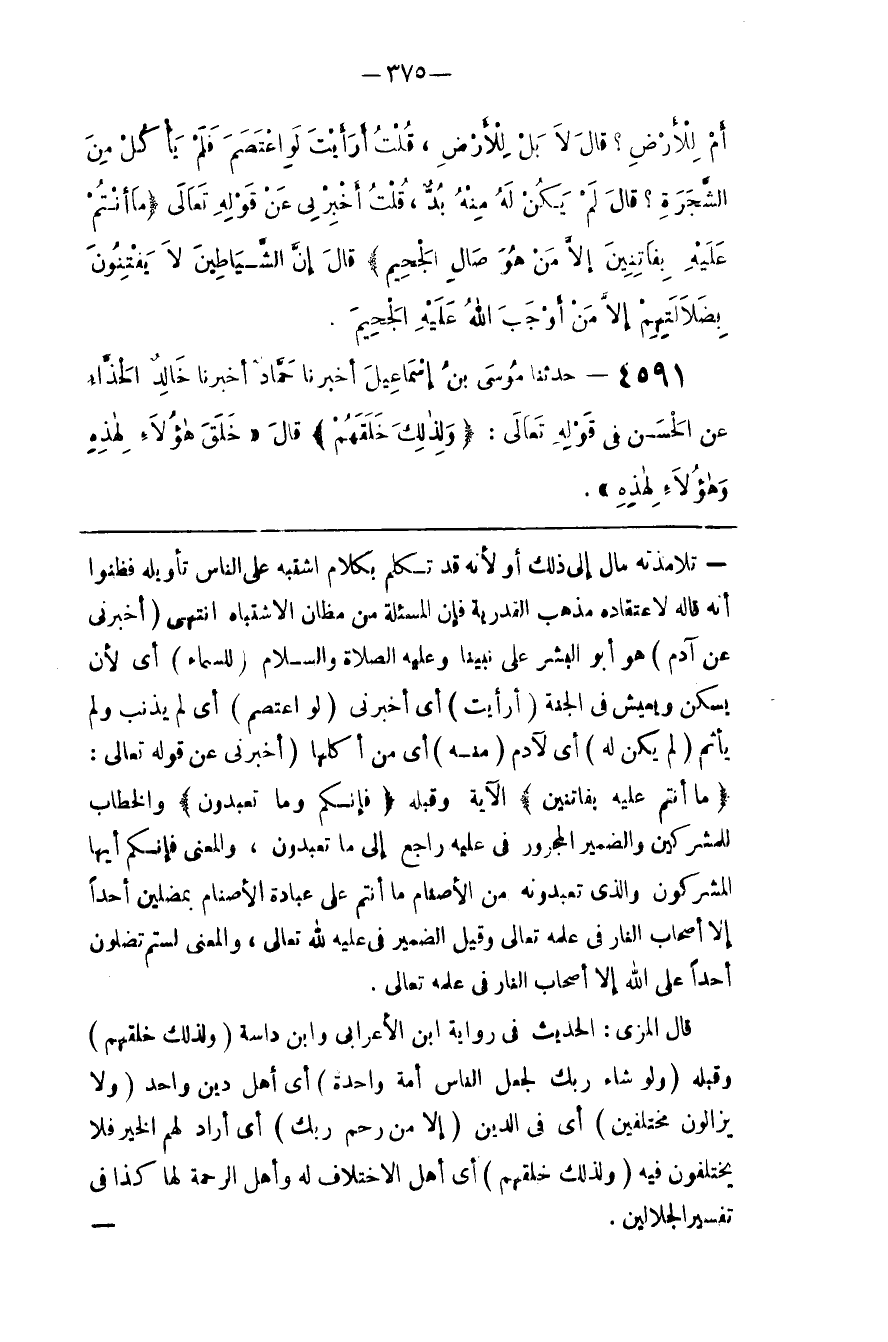 — ٣٧٥ —
أَمْ لِلْأَرْضِ ؟ قالَ لاَ بَلْ لِلْأَرْضِ ، قُلْتُ أَرَأَيْتَ لَوِ اعْتَصَمَ فَلَمْ يَأْكُلْ مِنَ
الشَّجَرَةِ ؟ قالَ لَمْ يَكُنْ لَهُ مِنْهُ بُدٌّ ، قُلْتُ أَخْبِرْنِى عَنْ قَوْلِهِ تَعَالَى ﴿ مَا أَنْتُمْ
عَلَيْهِ بِفَاتِنِينَ إلاَّ مَنْ هُوَ صَالِ الْجَحِيمِ ﴾ قالَ إِنَّ الشَّيَاطِينَ لاَ يَفْتِنُونَ
بِضَلاَلَتِهِمْ إلاَّ مَنْ أَوْجَبَ اللهُ عَلَيْهِ الْجَحِيمَ .
٤٥٩١ — حدثنا مُوسَى بنُ إسْمَاعِيلَ أخبرنا حَمَّادٌ أخبرنا خَالِدٌ الْحَذَّاءِ
عن الْحَسَنِ فى قَوْلِهِ تَعَالَى : ﴿ وَلِذٰلِكَ خَلَقَهُمْ ﴾ قالَ « خَلَقَ هٰؤُلاَءِ لِهٰذِهِ
وَهٰؤُلاَءِ لِهٰذِهِ » .
— تلامذته مال إلى ذلك أو لأنه قد تكلم بكلام اشتبه على الناس تأويله فظنوا
أنه قاله لاعتقاده مذهب القدرية فإن المسئلة من مظان الاشتباه انتهى ( أخبرنى
عن آدم ) هو أبو البشر على نبينا وعليه الصلاة والسلام ( للسماء ) أى لأن
يسكن ويعيش فى الجنة ( أرأيت ) أى أخبرنى ( لو اعتصم ) أى لم يذنب ولم
يأثم ( لم يكن له ) أى لآدم ( منه ) أى من أكلها ( أخبرنى عن قوله تعالى :
﴿ ما أنتم عليه بفاتنين ﴾ الآية وقبله ﴿ فإنكم وما تعبدون ﴾ والخطاب
للمشركين والضمير المجرور فى عليه راجع إلى ما تعبدون ، والمعنى فإنكم أيها
المشركون والذى تعبدونه من الأصنام ما أنتم على عبادة الأصنام بمضلين أحداً
إلا أصحاب النار فى علمه تعالى وقيل الضمير فى عليه لله تعالى ، والمعنى لستم تضلون
أحداً على الله إلا أصحاب النار فى علمه تعالى .
قال المزى : الحديث فى رواية ابن الأعرابى وابن داسة ( ولذلك خلقهم )
وقبله ( ولو شاء ربك لجعل الناس أمة واحدة ) أى أهل دين واحد ( ولا
يزالون مختلفين ) أى فى الدين ( إلا من رحم ربك ) أى أراد لهم الخير فلا
يختلفون فيه ( ولذلك خلقهم ) أى أهل الاختلاف له وأهل الرحمة لها كذا فى
تفسير الجلالين . —